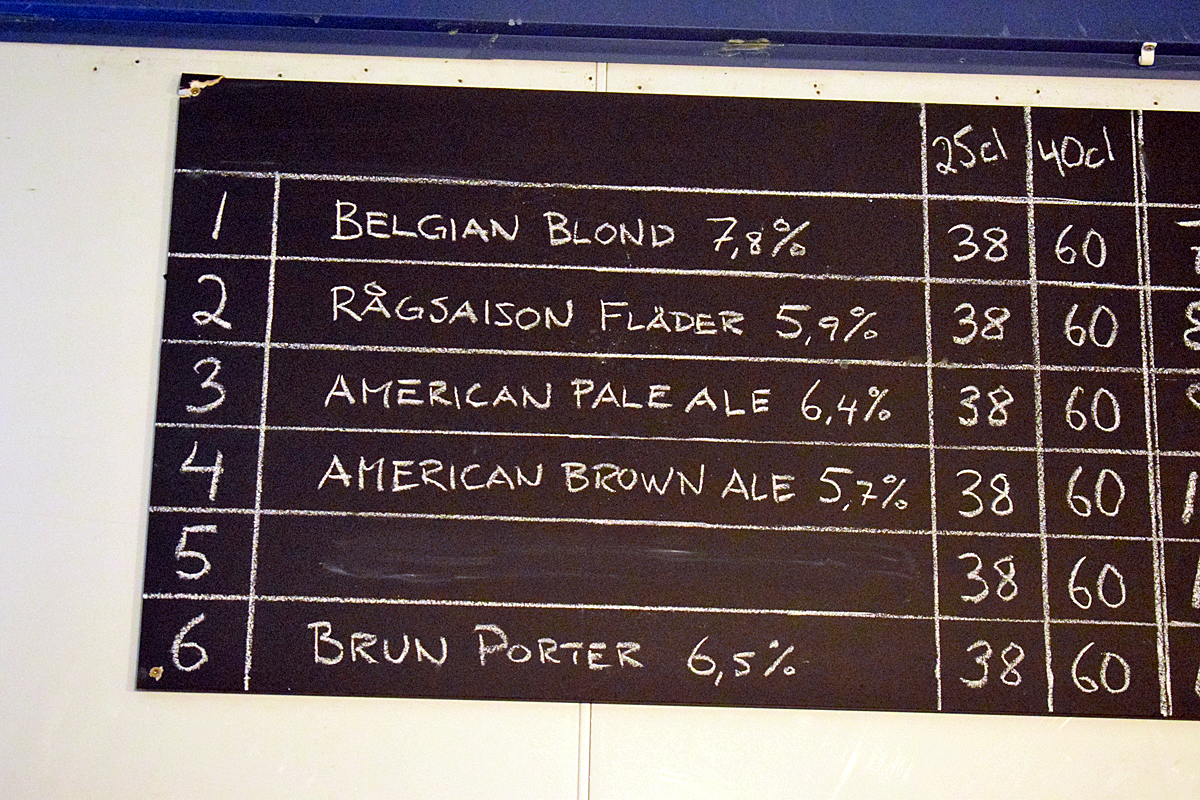 25cl 40cl
1 BELGIAN BLOND 7,8% 38 60
2 RÅGSAISON FLÄDER 5,9% 38 60
3 AMERICAN PALE ALE 6,4% 38 60
4 AMERICAN BROWN ALE 5,7% 38 60
5 38 60
6 BRUN PORTER 6,5% 38 60